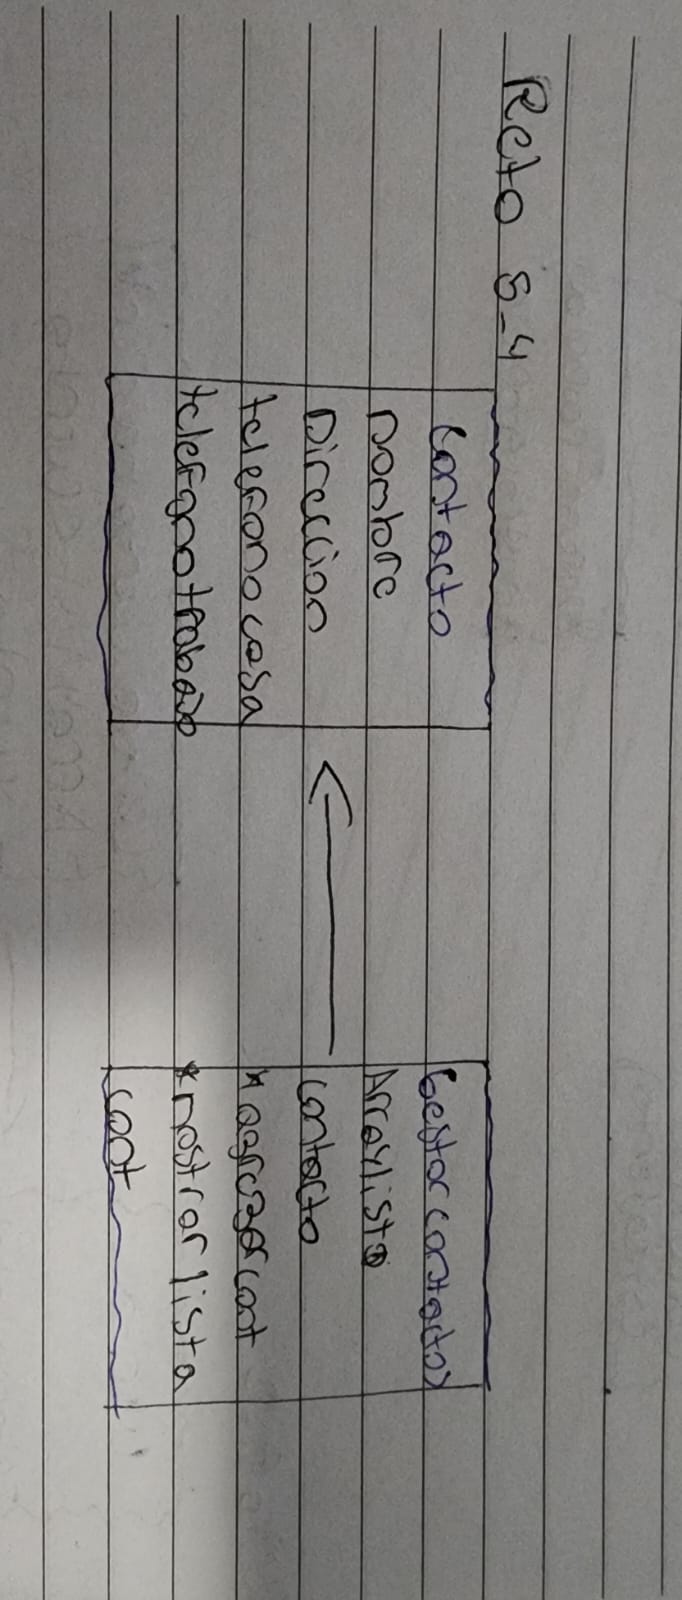 Reto 5_4
Contacto
nombre
Direccion
telefono casa
telefono trabajo
Gestor contactos
Arraylist
contacto
*agregar cont
*mostrar lista
cont